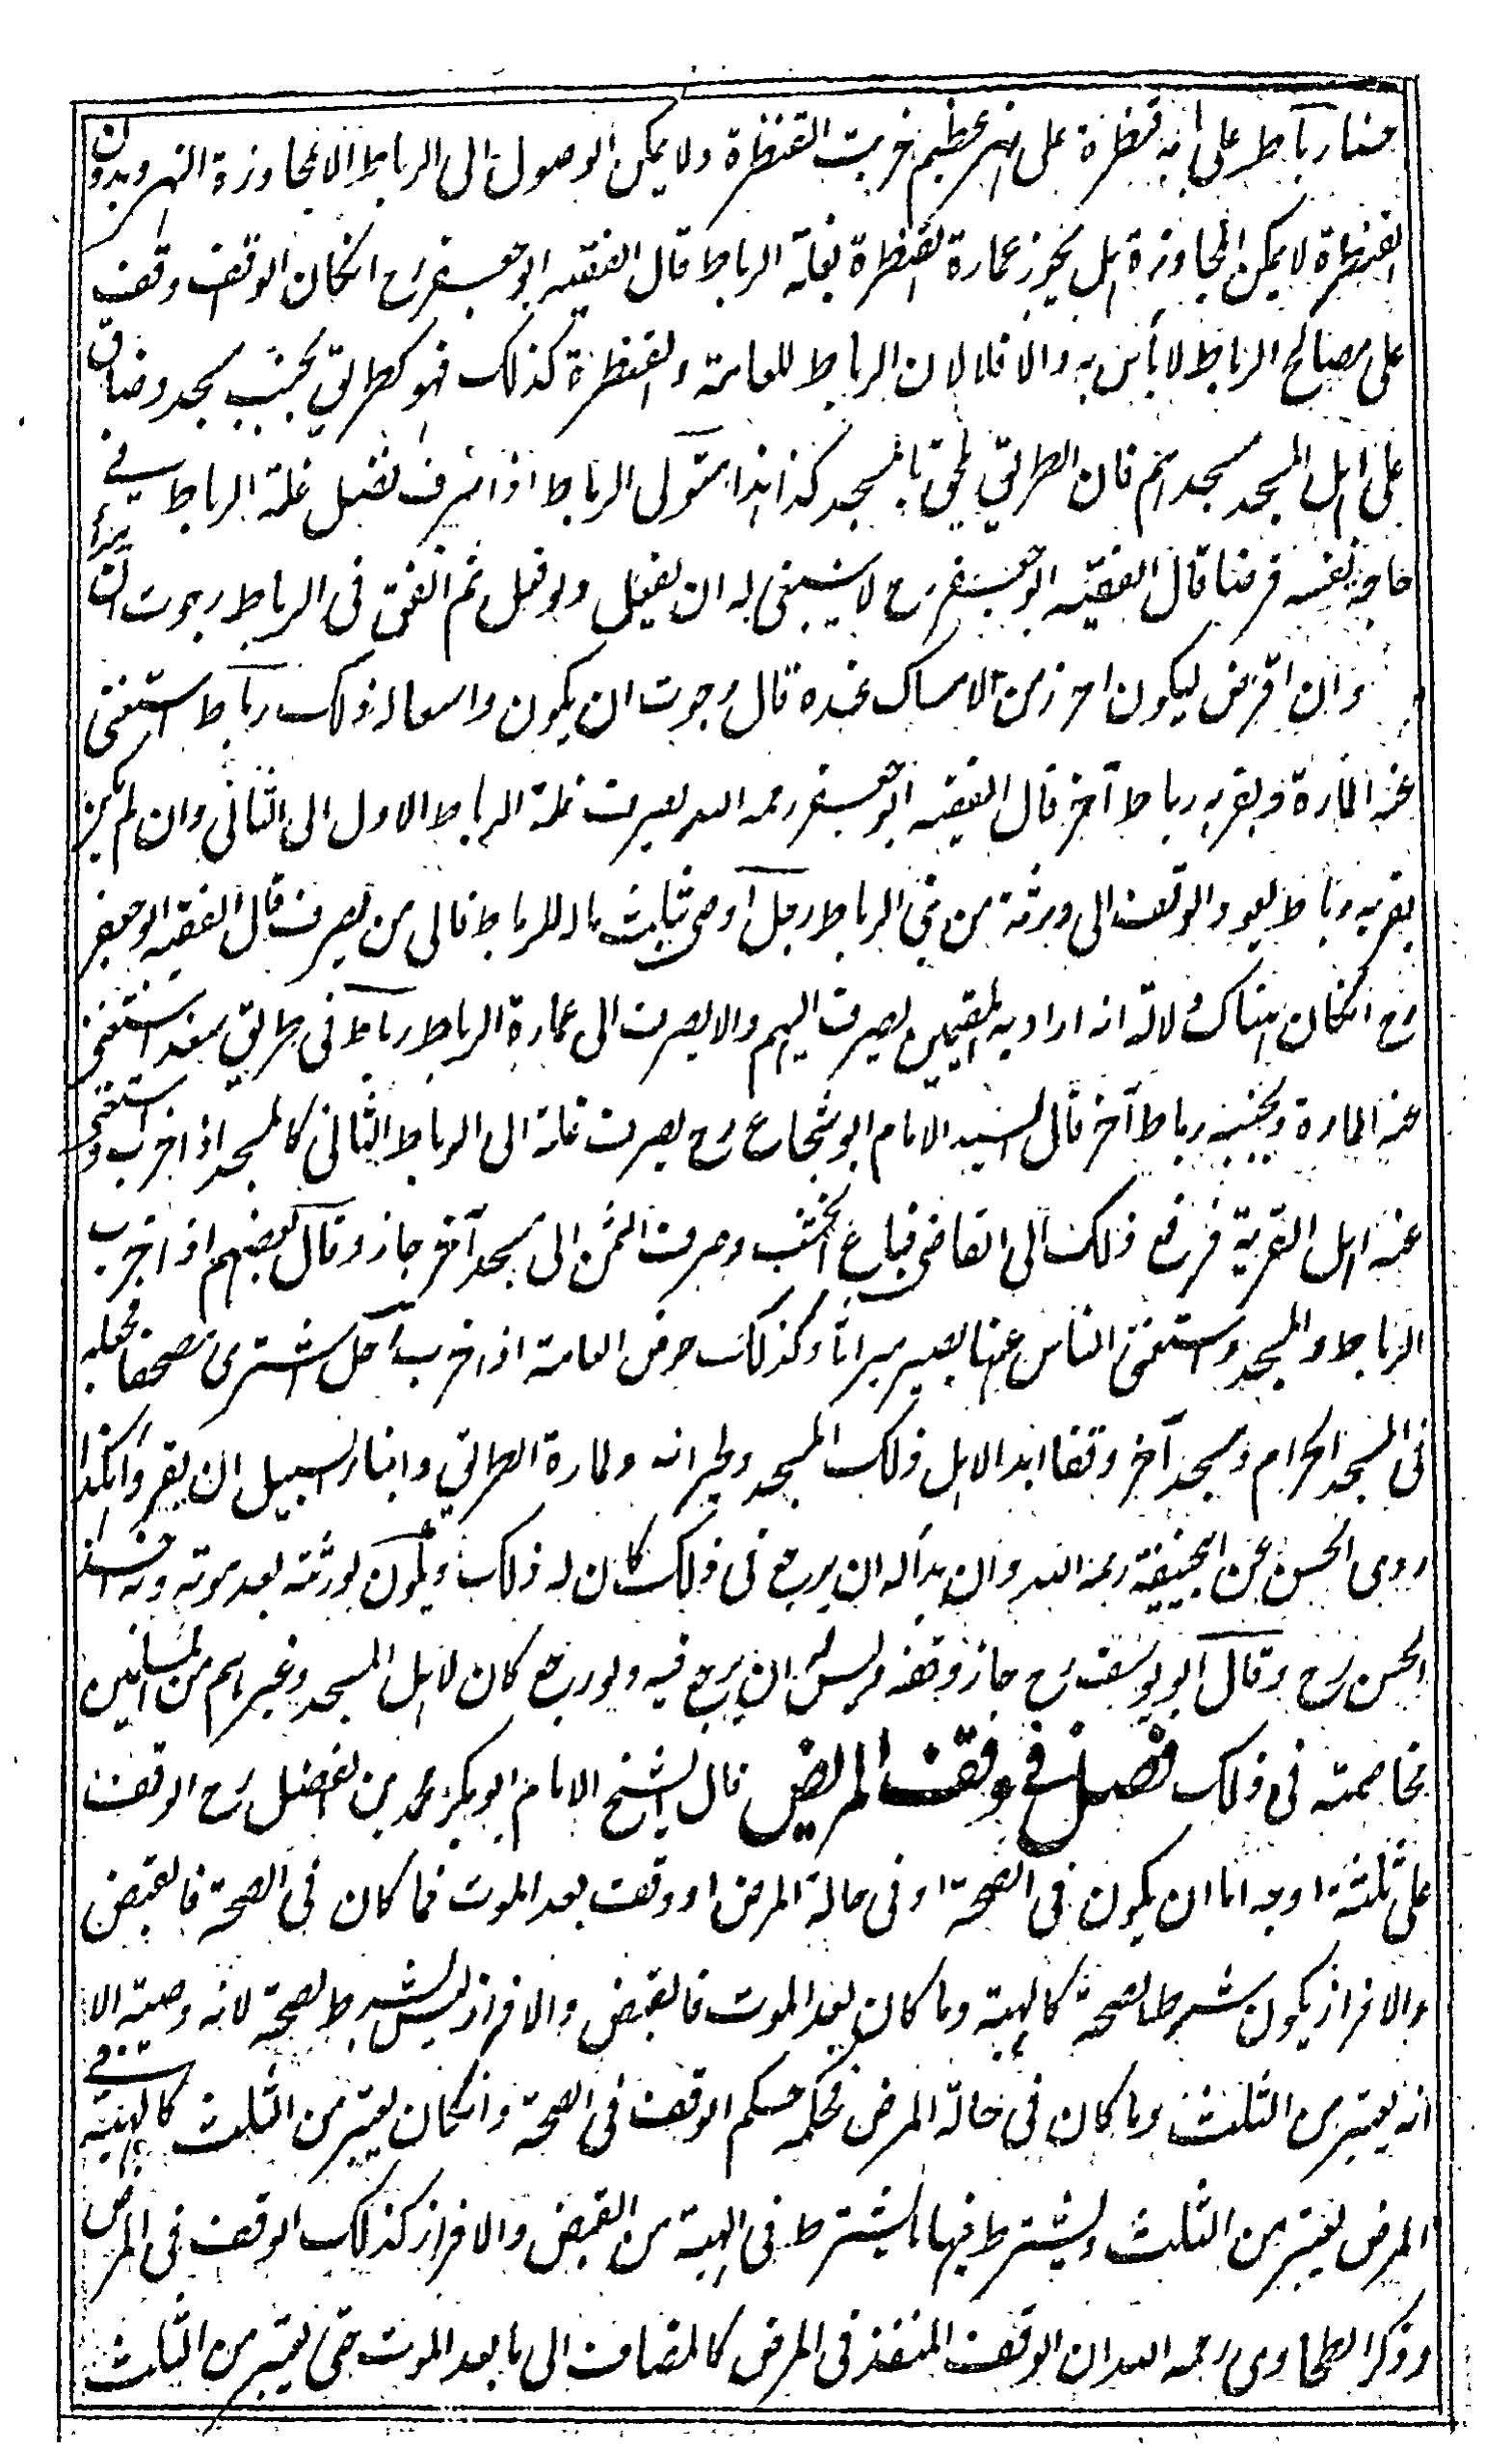 منها رباط على بابه قنطرة على نهر عظيم خربت القنطرة ولا يمكن الوصول الى الرباط الا بمجاوزة النهر وبدون
القنطرة لا يمكن المجاوزة هل يجوز عمارة القنطرة بغلة الرباط قال الفقيه ابو جعفر رح انكان الوقف وقف
على مصالح الرباط لا بأس به والا فلا لان الرباط للعامة والقنطرة كذلك فهو كطريق بجنب مسجد وضاق
على اهل المسجد مسجدهم فان الطريق يلحق بالمسجد كذا هذا متولى الرباط اذا صرف فضل غلة الرباط في
حاجة نفسه قرضا قال الفقيه ابو جعفر رح لا ينبغى له ان يفعل ولو فعل ثم انفق فى الرباط رجوت ان يبرأ
وان اقرض ليكون احرز من الامساك عنده قال رجوت ان يكون واسعا له ذلك رباط استغنى
عنه المارة وبقربه رباط آخر قال الفقيه ابو جعفر رحمه الله يصرف غلة الرباط الاول الى الثانى وان لم يكن
بقربه رباط يعود الوقف الى ورثة من بنى الرباط رجل اوصى بثلث ماله للرباط فالى من يصرف قال الفقيه ابو جعفر
رح انكان هناك دلالة انه اراد به المقيمين يصرف اليهم والا يصرف الى عمارة الرباط رباط فى طريق بعيد استغنى
عنه المارة وبجنبه رباط آخر قال السيد الامام ابو شجاع رح يصرف غلته الى الرباط الثانى كالمسجد اذا خرب واستغنى
عنه اهل القرية فرفع ذلك الى القاضى فباع الخشب وصرف الثمن الى مسجد آخر جاز وقال بعضهم اذا خرب
الرباط والمسجد واستغنى الناس عنها يصير ميراثا وكذلك حوض العامة اذا خرب رجل اشترى مصحفا فجعله
فى المسجد الحرام ومسجد آخر وقفا ابدا لاهل ذلك المسجد ولجيرانه ولمارة الطريق وابناء السبيل ان يقروا هكذا
روى الحسن عن ابيحنيفة رحمه الله وان بدا له ان يرجع فى ذلك كان له ذلك ويكون لورثته بعد موته وبه اخذ
الحسن رح وقال ابو يوسف رح جاز وقفه وليس له ان يرجع فيه ولو رجع كان لاهل المسجد وغيرهم من المسلمين
مخاصمته فى ذلك فصل في وقف المريض قال الشيخ الامام ابو بكر محمد بن الفضل رح الوقف
على ثلثة اوجه اما ان يكون فى الصحة او فى حالة المرض او وقف بعد الموت فما كان فى الصحة فالقبض
والافراز يكون شرطا لصحته كالهبة وما كان بعد الموت فالقبض والافراز ليس بشرط لصحته لانه وصية الا
انه يعتبر من الثلث وما كان فى حالة المرض فحكمه حكم الوقف فى الصحة وانكان يعتبر من الثلث كالهبة في
المرض يعتبر من الثلث ويشترط فيها ما يشترط فى الهبة من القبض والافراز كذلك الوقف فى المرض
وذكر الطحاوى رحمه الله ان الوقف المنفذ فى المرض كالمضاف الى ما بعد الموت حتى يعتبر من الثلث